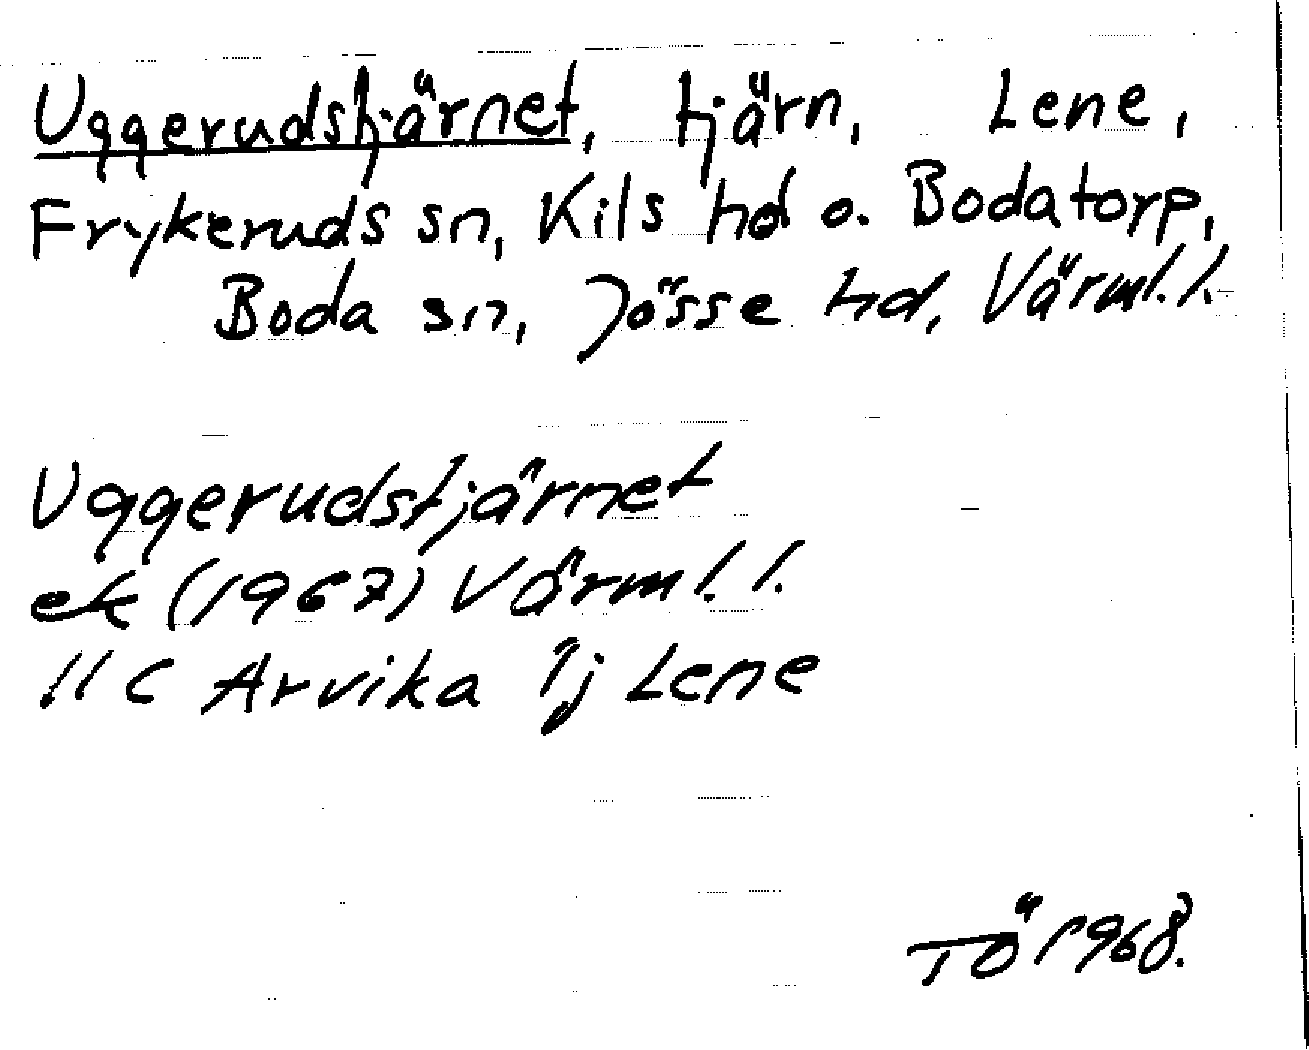 Uggerudstjärnet, tjärn, Lene,
Frykeruds sn, Kils hd o. Bodatorp,
Boda sn, Jösse hd, Värml. l.
Uggerudstjärnet
ek (1967) Värml. l.
11 C Arvika Lene
TÖ 1968.